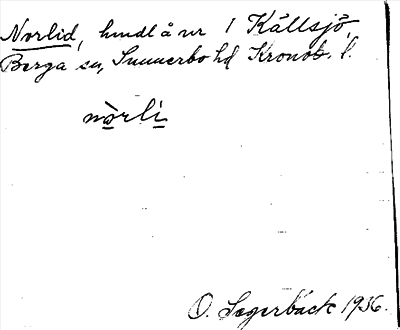 Norlid, hmdl å nr 1 Källsjö,
Berga sn, Sunnerbo hd Kronob. l.
nòrli
O. Sagerbäck 1936.